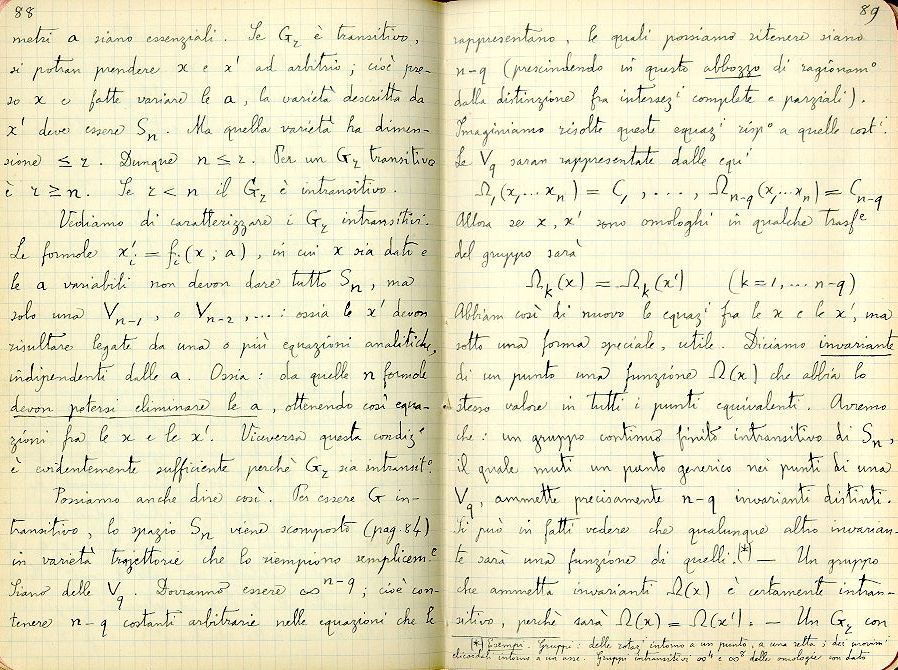 88
metri a siano essenziali. Se G_r è transitivo,
si potran prendere x e x' ad arbitrio; cioè pre-
so x e fatte variare le a, la varietà descritta da
x' deve essere S_n. Ma quella varietà ha dimen-
sione ≤ r. Dunque n ≤ r. Per un G_r transitivo
è r ≥ n. Se r < n il G_r è intransitivo.
Vediamo di caratterizzare i G_r intransitivi.
Le formole x'_i = f_i(x; a), in cui x sia dato e
le a variabili non devon dare tutto S_n, ma
solo una V_{n-1}, o V_{n-2}, ...: ossia le x' devon
risultare legate da una o più equazioni analitiche,
indipendenti dalle a. Ossia: da quelle n formole
devon potersi eliminare le a, ottenendo così equa-
zioni fra le x e le x'. Viceversa questa condiz^e
è evidentemente sufficiente perchè G_r sia intransit^o.
Possiamo anche dire così. Per essere G in-
transitivo, lo spazio S_n viene scomposto (pag. 84)
in varietà trajettorie che lo riempiono semplicem^e.
Siano delle V_q. Dovranno essere ∞^{n-q}; cioè con-
tenere n-q costanti arbitrarie nelle equazioni che le
89
rappresentano, le quali possiamo ritenere siano
n-q (prescindendo in questo abbozzo di ragionam^o
dalla distinzione fra intersez^i complete e parziali).
Imaginiamo risolte queste equaz^i risp^o a quelle cost^i.
Le V_q saran rappresentate dalle equ^i
Ω_1(x_1...x_n) = C_1, ..., Ω_{n-q}(x_1...x_n) = C_{n-q}
Allora se x, x' sono omologhi in qualche trasf^e
del gruppo sarà
Ω_k(x) = Ω_k(x') (k = 1, ... n-q)
Abbiam così di nuovo le equaz^i fra le x e le x', ma
sotto una forma speciale, utile. Diciamo invariante
di un punto una funzione Ω(x) che abbia lo
stesso valore in tutti i punti equivalenti. Avremo
che: un gruppo continuo finito intransitivo di S_n,
il quale muti un punto generico nei punti di una
V_q, ammette precisamente n-q invarianti distinti.
Si può in fatti vedere che qualunque altro invarian-
te sarà una funzione di quelli.(*) — Un gruppo
che ammetta invarianti Ω(x) è certamente intran-
sitivo, perchè sarà Ω(x) = Ω(x'). — Un G_r con
(*) Esempi. Gruppi: delle rotaz^i intorno a un punto, a una retta; dei movim^i
elicoidali intorno a un asse. Gruppi intransitivi ∞^4 e ∞^3 delle omologie con dato